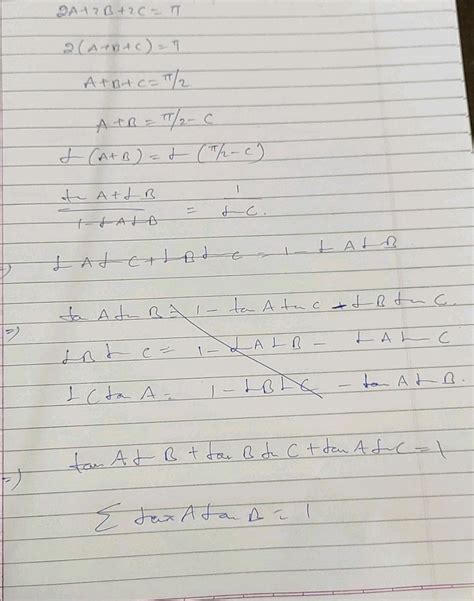 2A+2B+2C = π
2(A+B+C) = π
A+B+C = π/2
A+B = π/2 - C
t (A+B) = t (π/2 - C)
tan A + t B / 1 - t A t B = 1 / t C.
=) t A t C + t B t C = 1 - t A t B
tan A tan B = 1 - tan A tan C - t B tan C.
=) t B t C = 1 - t A t B - t A t C
t C tan A = 1 - t B t C - tan A t B.
=) tan A t B + tan B tan C + tan A t C = 1
∑ tan A tan B = 1